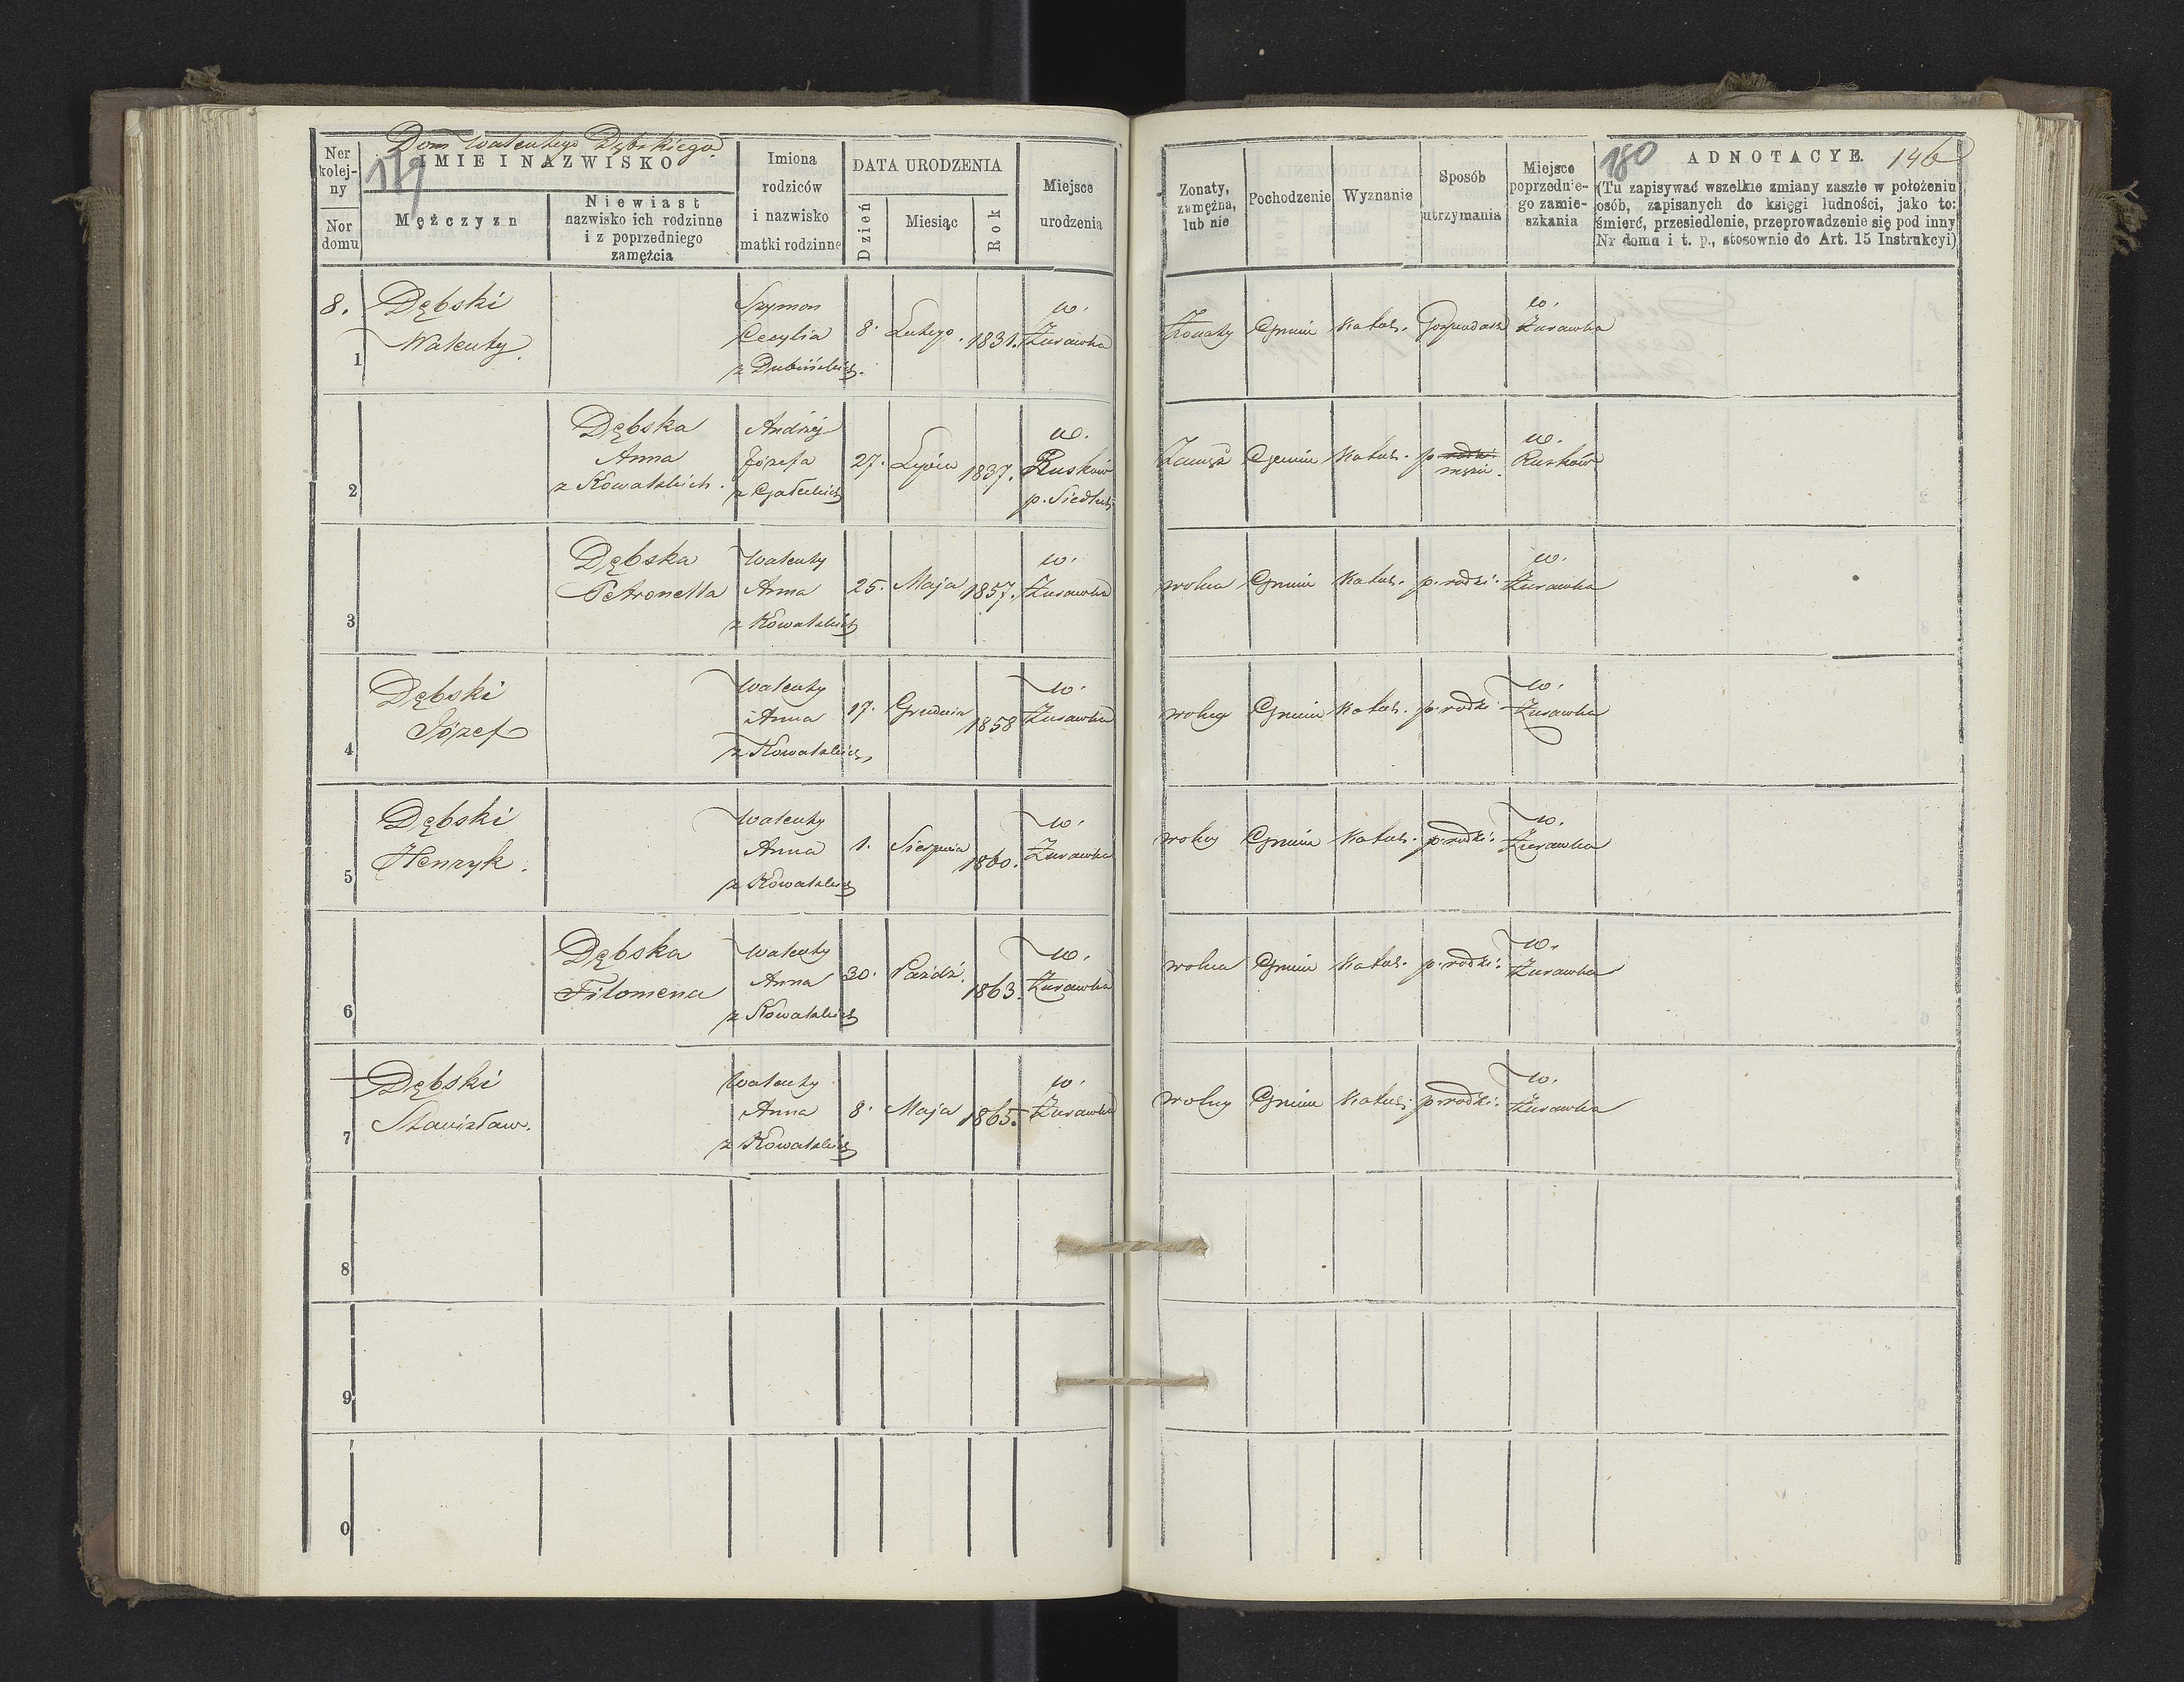 Dom Walentego Dębskiego
179
Ner kolejny
Nor domu
IMIE I NAZWISKO
Mężczyzn
Niewiast
nazwisko ich rodzinne
i z poprzedniego
zamężcia
Imiona
rodziców
i nazwisko
matki rodzinne
DATA URODZENIA
Dzień
Miesiąc
Rok
Miejsce
urodzenia
Żonaty,
zamężna,
lub nie
Pochodzenie
Wyznanie
Sposób
utrzymania
Miejsce
poprzednie-
go zamie-
szkania
180
ADNOTACYE.
146
(Tu zapisywać wszelkie zmiany zaszłe w położeniu
osób, zapisanych do księgi ludności, jako to:
śmierć, przesiedlenie, przeprowadzenie się pod inny
Nr domu i t. p., stosownie do Art. 15 Instrukcyi)
8.
1
Dębski
Walenty.
Szymon
Cecylia
z Dubińskich.
8. Lutego. 1831.
w.
Żurawka
Żonaty Gmin Katol. Gospodarz
w.
Żurawka
2
Dębska
Anna
z Kowalskich.
Andrzej
Józefa
z Gałeckich
27. Lipca 1837.
w.
Ruskow
p. Siedlecki
Zamęż. Gmin Katol. p. rodz.
mężu.
w.
Ruskow
3
Dębska
Petronella
Walenty
Anna
z Kowalskich
25. Maja 1857.
w.
Żurawka
wolna Gmin Katol. p. rodzi.
w.
Żurawka
4
Dębski
Józef
Walenty
Anna
z Kowalskich
17. Grudnia 1858
w.
Żurawka
wolny Gmin Katol. p. rodzi
w.
Żurawka
5
Dębski
Henryk.
Walenty
Anna
z Kowalskich
1. Sierpnia 1860.
w.
Żurawka
wolny Gmin Katol. p. rodzi.
w.
Żurawka
6
Dębska
Filomena
Walenty
Anna
z Kowalskich
30. Paźdź. 1863.
w.
Żurawka
wolna Gmin Katol. p. rodzi.
w.
Żurawka
7
Dębski
Stanisław.
Walenty
Anna
z Kowalskich
8. Maja 1865.
w.
Żurawka
wolny Gmin Katol. p. rodzi.
w.
Żurawka
8
9
0